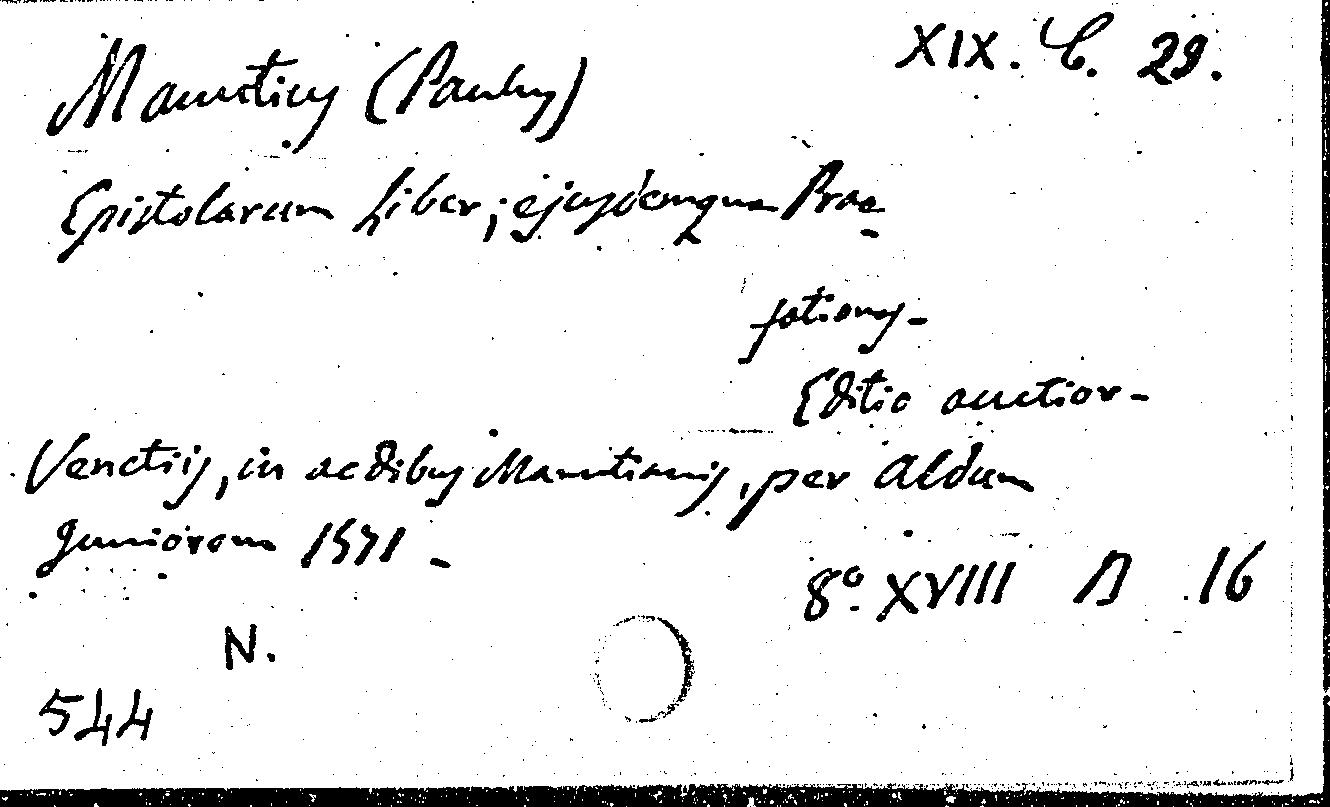 Manutius (Paulus) XIX. C. 29.
Epistolarum Liber, ejusdemque Prae-
fationes -
Editio auctior -
Venetiis, in aedibus Manutianis, per Aldum
Juniorem 1571 -
8º XVIII B 16
N.
544